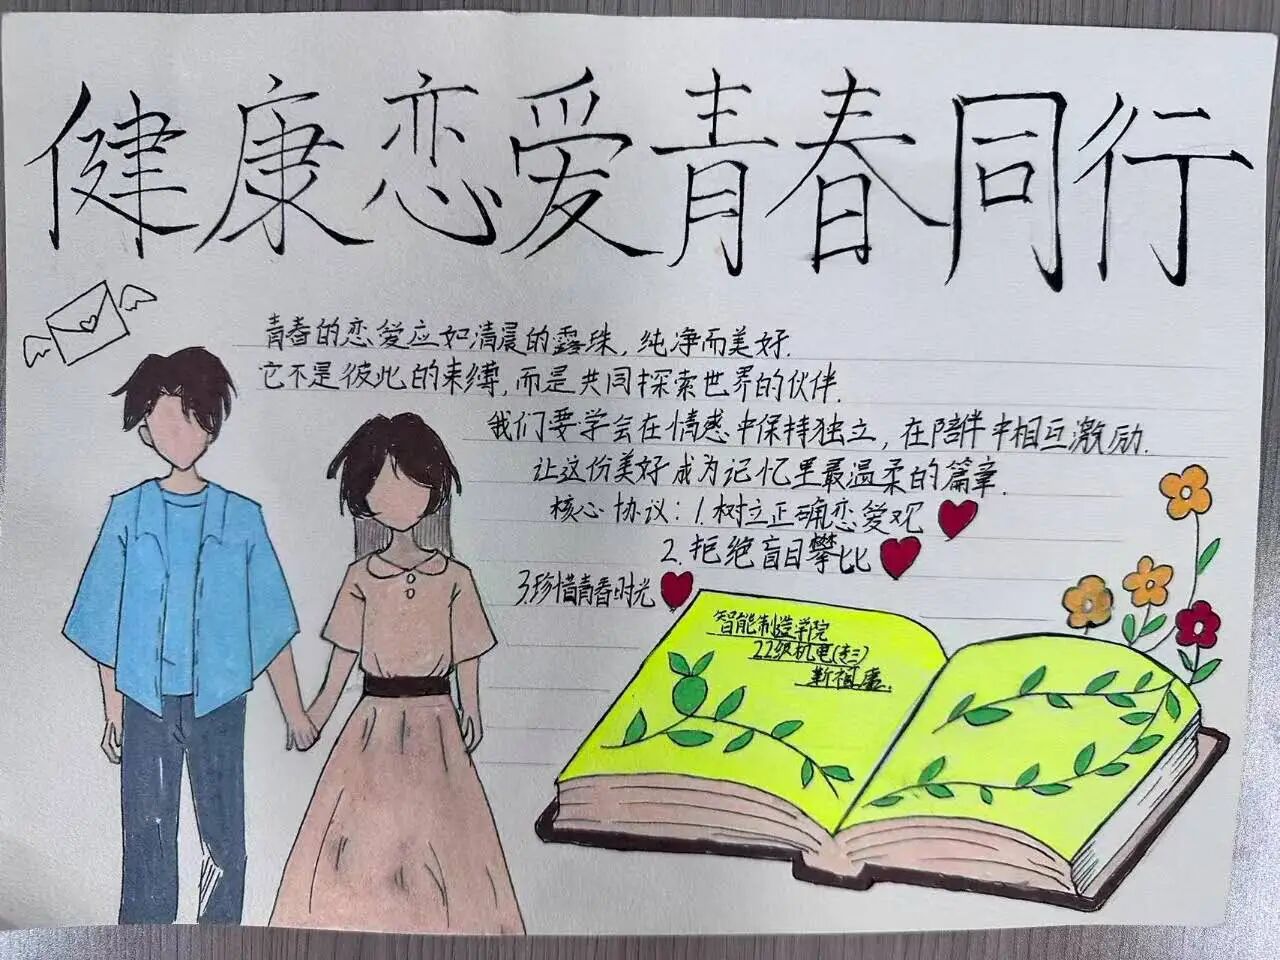 健康恋爱青春同行
青春的恋爱应如清晨的露珠,纯净而美好.
它不是彼此的束缚,而是共同探索世界的伙伴.
我们要学会在情感中保持独立,在陪伴中相互激励.
让这份美好成为记忆里最温柔的篇章.
核心协议:1.树立正确恋爱观
2.拒绝盲目攀比
3.珍惜青春时光
智能制造学院
22级机电(专三)
靳祖康.